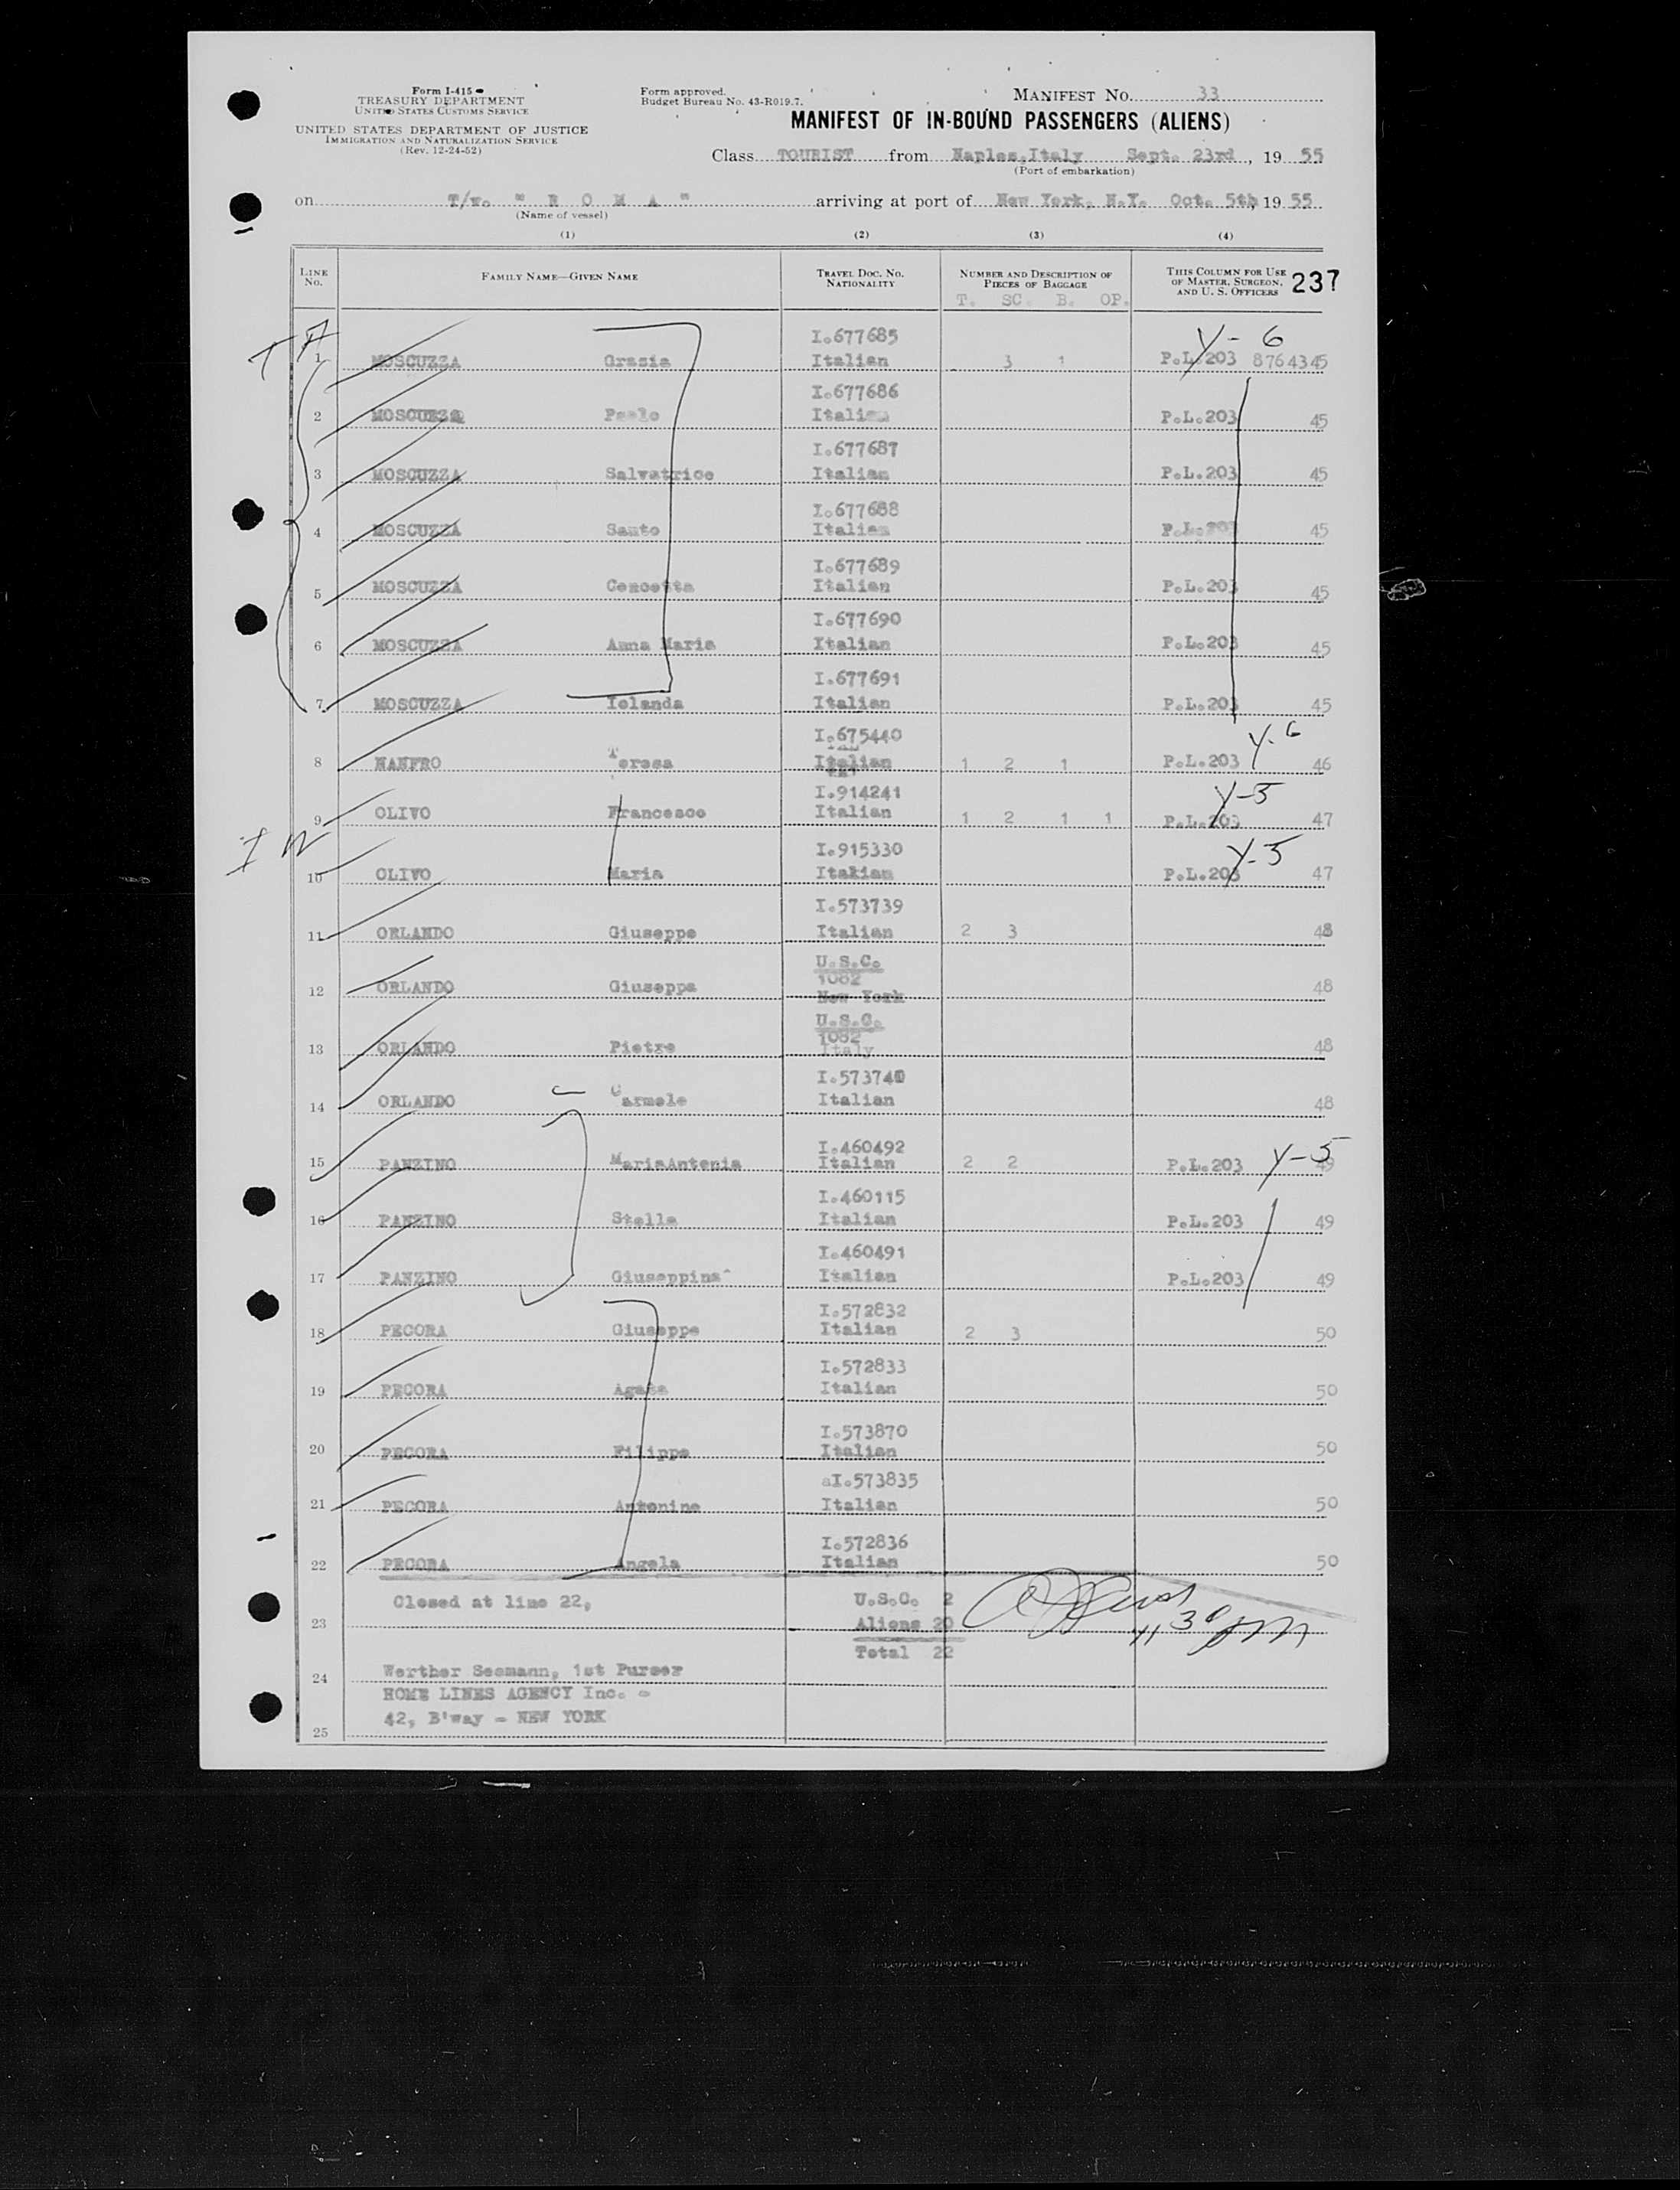 Form I-415
TREASURY DEPARTMENT
UNITED STATES CUSTOMS SERVICE
UNITED STATES DEPARTMENT OF JUSTICE
IMMIGRATION AND NATURALIZATION SERVICE
(Rev. 12-24-52)
Form approved.
Budget Bureau No. 43-R019.7.
MANIFEST No. 33
MANIFEST OF IN-BOUND PASSENGERS (ALIENS)
Class TOURIST from Naples, Italy Sept. 23rd, 19 55
(Port of embarkation)
on "R O M A" arriving at port of New York, N.Y. Oct. 5th, 19 55
(Name of vessel)
(1) (2) (3) (4)
LINE No. FAMILY NAME—GIVEN NAME TRAVEL DOC. NO. NATIONALITY NUMBER AND DESCRIPTION OF PIECES OF BAGGAGE THIS COLUMN FOR USE OF MASTER, SURGEON, AND U. S. OFFICERS 237
T. SC. B. OP.
T A
I.677685 Y-6
1 MOSCUZZA Grazia Italian 3 1 P.L.203 8764345
I.677686
2 MOSCUZZA Paolo Italian P.L.203 45
I.677687
3 MOSCUZZA Salvatrice Italian P.L.203 45
I.677688
4 MOSCUZZA Santo Italian P.L.203 45
I.677689
5 MOSCUZZA Concetta Italian P.L.203 45
I.677690
6 MOSCUZZA Anna Maria Italian P.L.203 45
I.677691
7 MOSCUZZA Iolanda Italian P.L.203 45
I.675440 Y-6
8 NANFRO Teresa Italian 1 2 1 P.L.203 46
I.914241 Y-5
9 OLIVO Francesco Italian 1 2 1 1 P.L.203 47
I.915330 Y-5
10 OLIVO Maria Italian P.L.203 47
I.573739
11 ORLANDO Giuseppe Italian 2 3 48
U.S.C.
1082
12 ORLANDO Giuseppa New York 48
U.S.C.
1082
13 ORLANDO Pietro Italy 48
I.573740
14 ORLANDO Carmelo Italian 48
I.460492 Y-5
15 PANZINO MariaAntonia Italian 2 2 P.L.203 49
I.460115
16 PANZINO Stella Italian P.L.203 49
I.460491
17 PANZINO Giuseppina Italian P.L.203 49
I.572832
18 PECORA Giuseppe Italian 2 3 50
I.572833
19 PECORA Agata Italian 50
I.573870
20 PECORA Filippo Italian 50
aI.573835
21 PECORA Antonino Italian 50
I.572836
22 PECORA Angela Italian 50
Closed at line 22, U.S.C. 2
23 Aliens 20
Total 22
24 Werther Seemann, 1st Purser
HOME LINES AGENCY Inc. -
42, B'way - NEW YORK
25